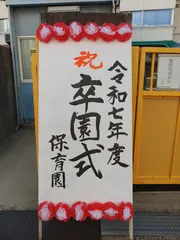 令和七年度
祝
卒園式
保育園